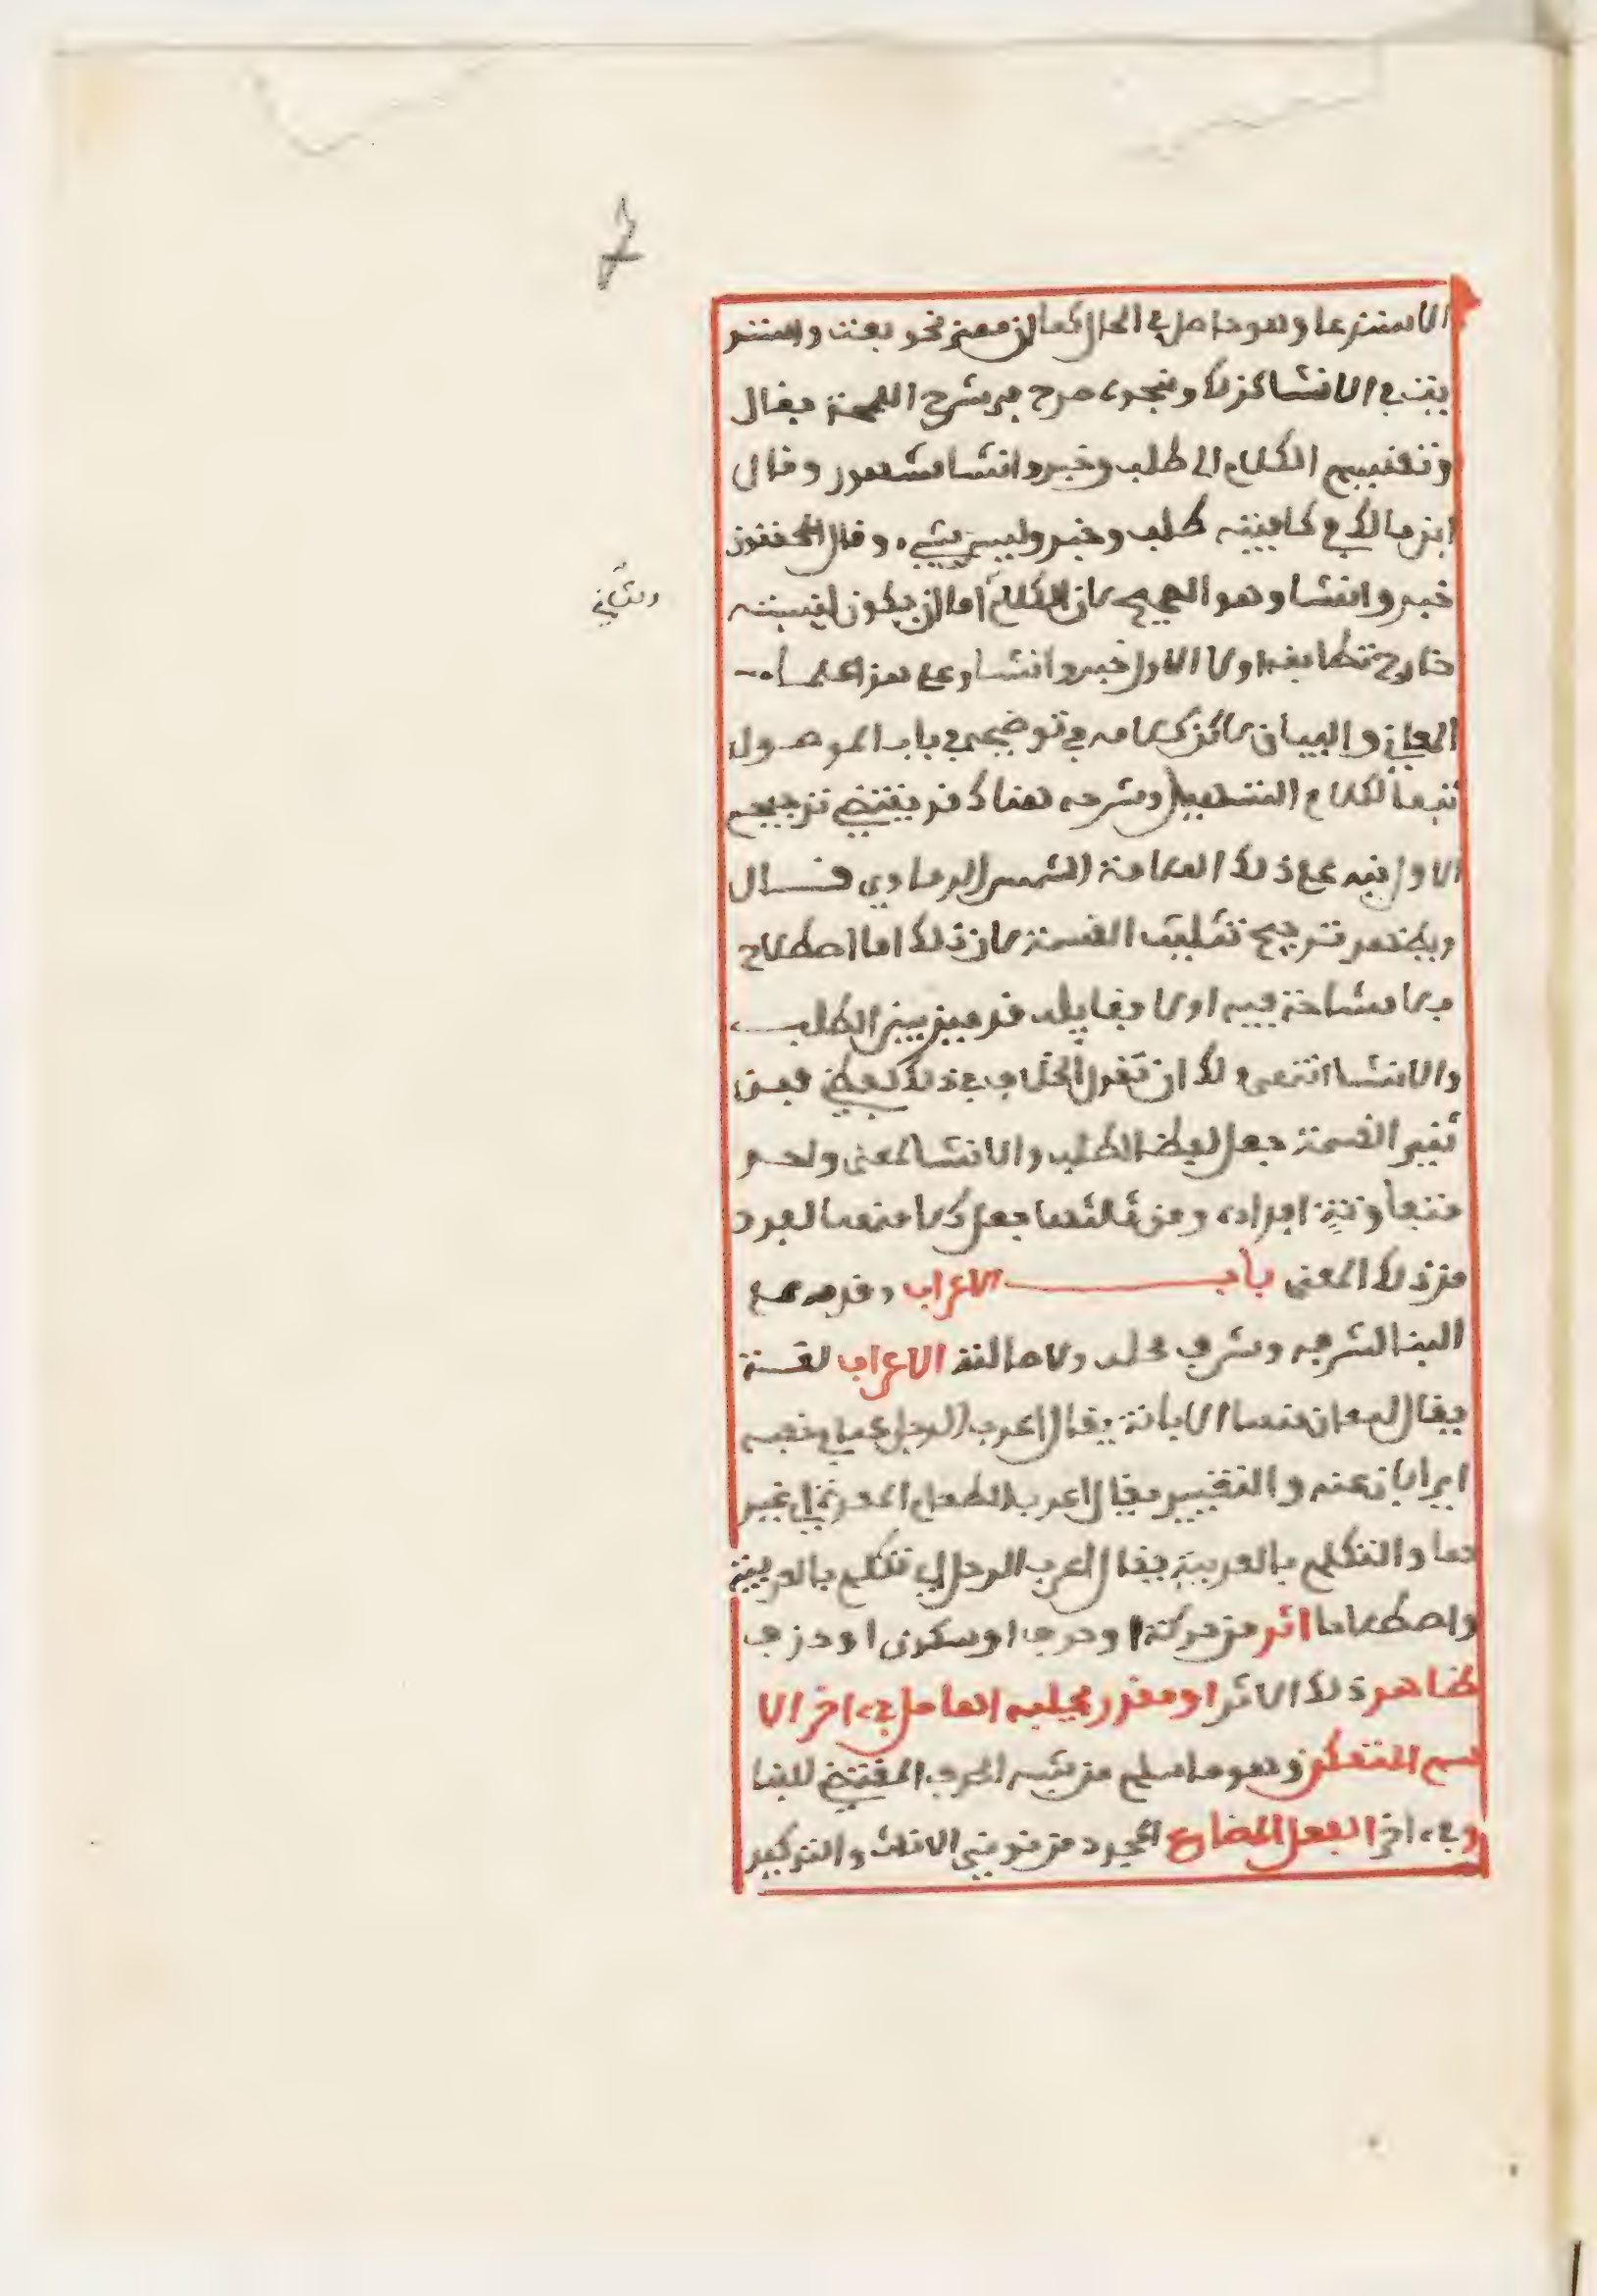 الاستدعا وهو حاصل في الحال كما ان معنى نحو بعت واشتر
يت في الانشا كذلك وبنحوه صرح في شرح اللمحة فقال
وتقسيم الكلام الى طلب وخبر وانشا مشهور وقال
ابن مالك في كافيته طلب وخبر وليس بشيء وقال المحققون
خبر وانشا وهو الصحيح لان الكلام اما ان يكون لنسبته
خارج تطابقه اولا الاول خبر والثاني انشا وعلى هذا علما
المعاني والبيان لاكن كلامه في توضيحه في باب الموصول
تبعا لكلام التسهيل وشرحه هناك قد يقتضي ترجيح
الاول نبه على ذلك العلامة الشمس البرماوي قال
ويظهر ترجيح تثليث القسمة لان ذلك اما اصطلاح
فلا مشاحة فيه اولا فقايله قد ميز بين الطلب
والانشا انتهى ولك ان تقول الخلاف في ذلك لفظي فمن
ثنى القسمة جعل لفظ الطلب والانشا لمعنى واحد
متفاوتة افراده ومن ثلثها جعل كلا منهما لفرد
من ذلك المعنى باب الاعراب وقدمه على
البنا لشرفه وشرف محله ولاصالته الاعراب لغة
يقال لمعان منها الابانة يقال اعرب الرجل عما في نفسه
اي ابان عنه والتغيير يقال اعرب الطعام المعدة اي غير
ها والتكلم بالعربية يقال اعرب الرجل اي تكلم بالعربية
واصطلاحا اثر من حركة او حرف او سكون او حذف
ظاهر ذلك الاثر او مقدر يجلبه العامل في اخر الا
سم المتمكن وهو ما سلم من شبه الحرف المقتضي للبنا
وفي اخر الفعل المضارع المجرد من نوني الاناث والتوكيد
والثاني